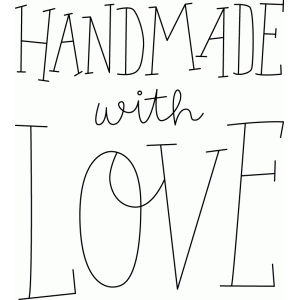 HANDMADE
with
LOVE